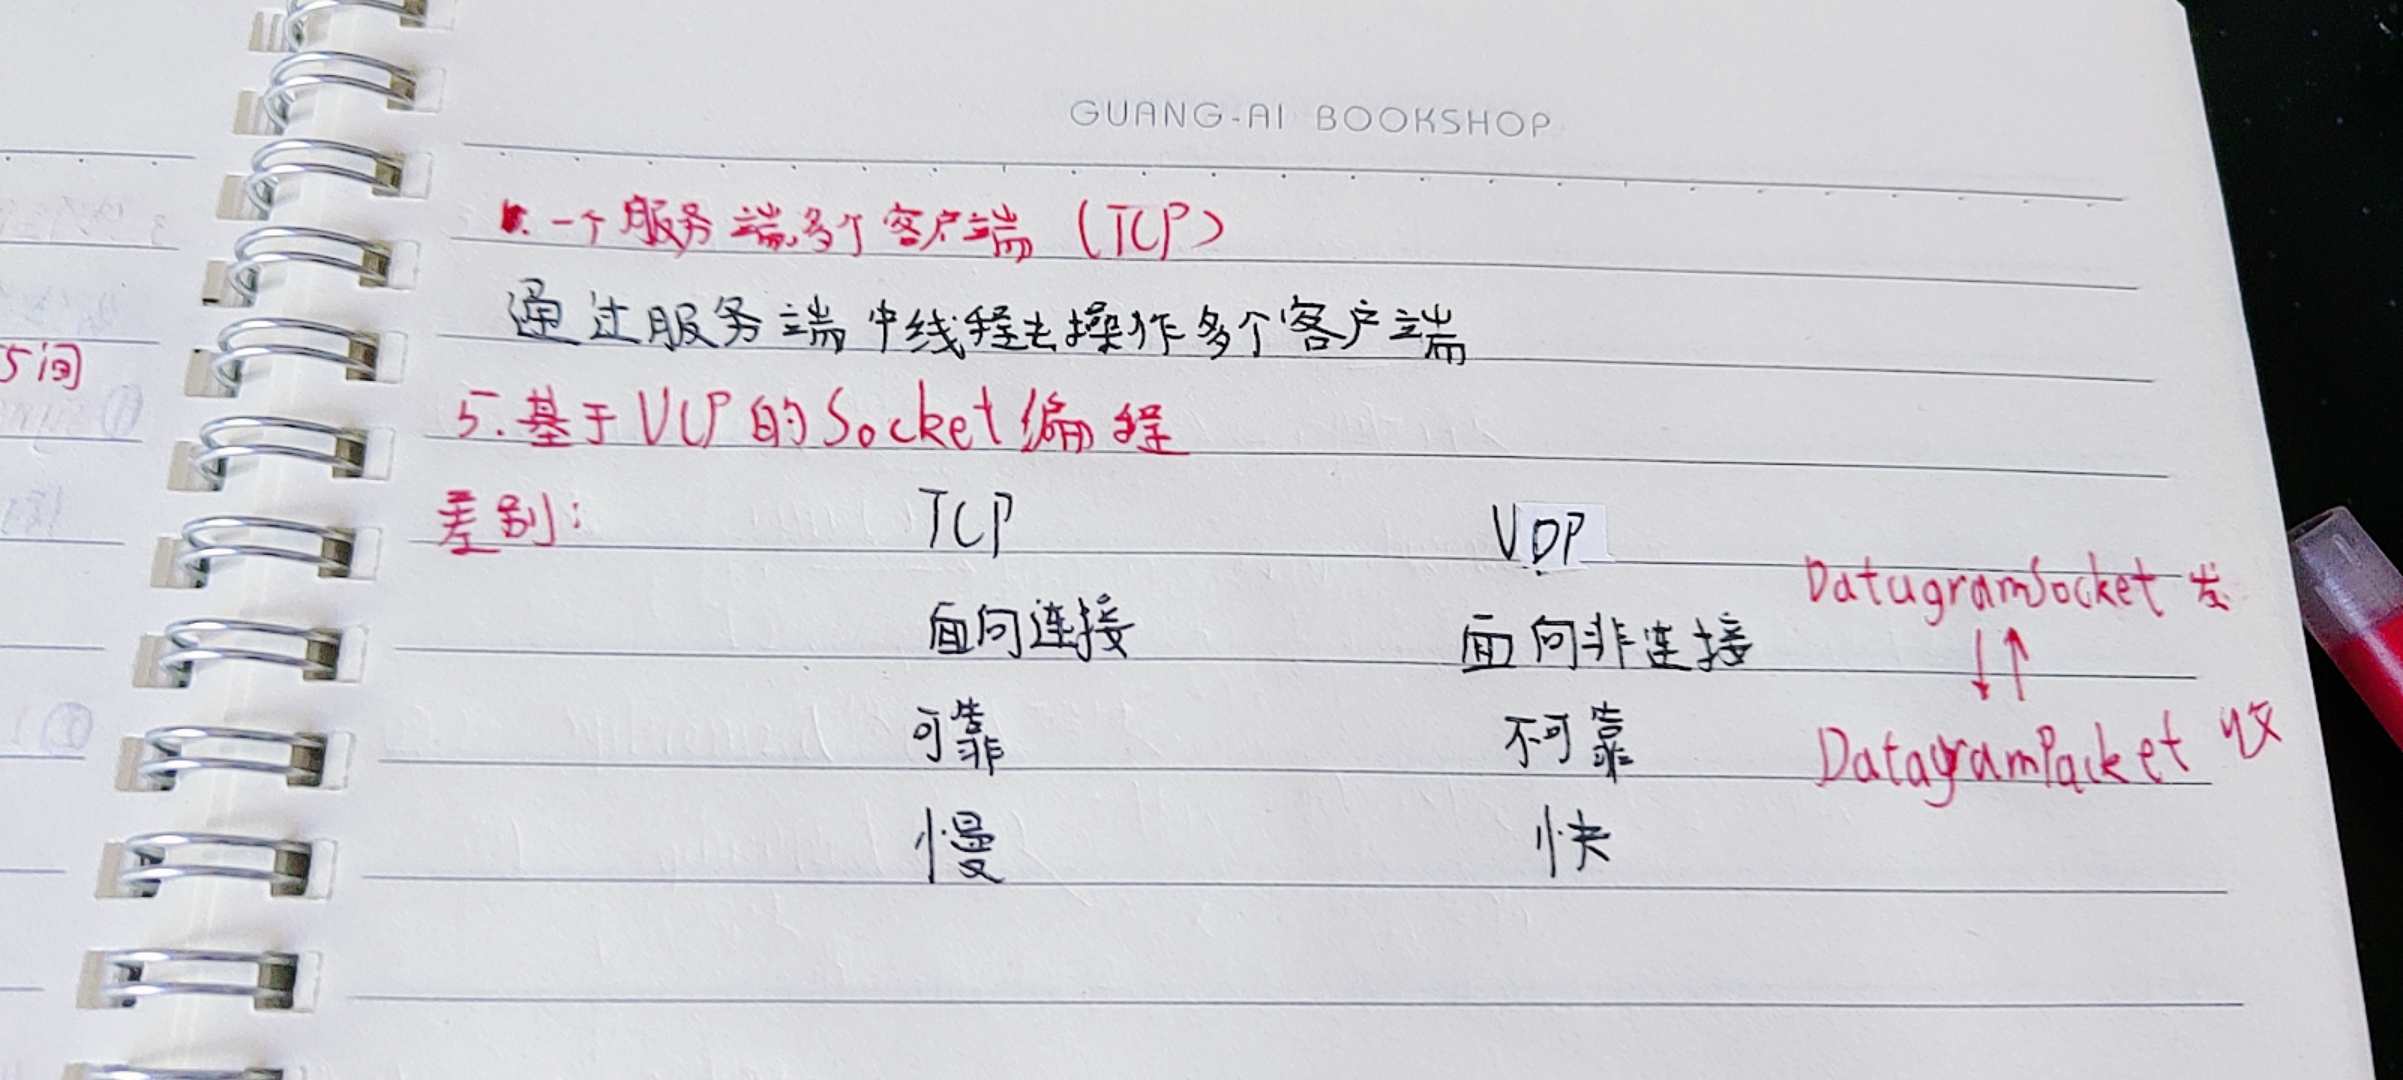 GUANG-AI BOOKSHOP
一个服务端,多个客户端 (TCP)
通过服务端中线程去操作多个客户端
5间
5.基于VCP的Socket编程
差别: TCP VDP
DatagramSocket 发
面向连接 面向非连接
↓↑
可靠 不可靠
DatagramPacket 收
慢 快